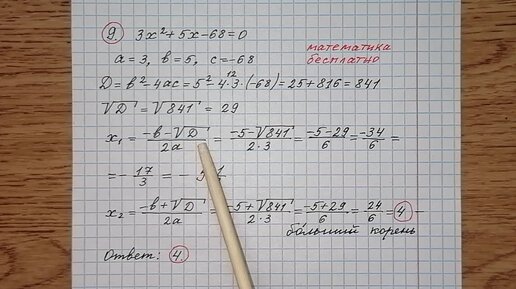 9. 3x²+5x-68=0
математика
бесплатно
a=3, b=5, c=-68
D=b²-4ac=5²-4·3·(-68)=25+816=841
12
√D=√841=29
x₁=(-b-√D)/2a=(-5-√841)/2·3=(-5-29)/6=-34/6=
=-17/3=-
x₂=(-b+√D)/2a=(-5+√841)/2·3=(-5+29)/6=24/6=4-
бо́льший корень
Ответ: 4.